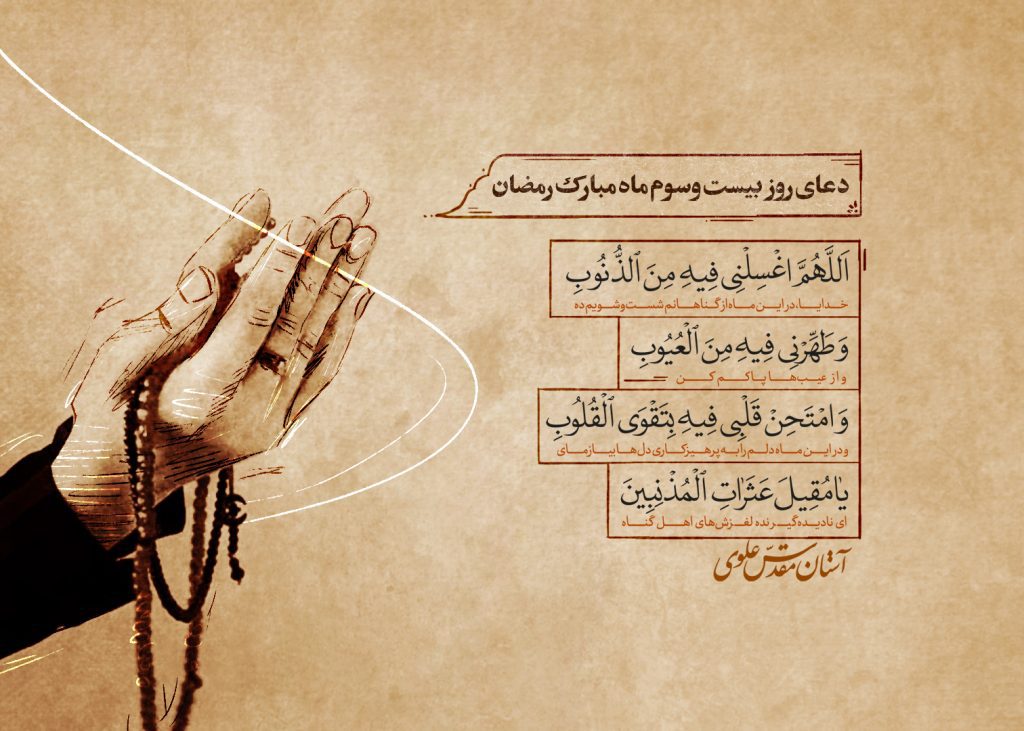 دعای روز بیست و سوم ماه مبارک رمضان
اَللَّهُمَّ اغْسِلْنِی فِیهِ مِنَ ٱلذُّنُوبِ
خدایا، در این ماه از گناهانم شست‌وشویم ده
وَ طَهِّرْنِی فِیهِ مِنَ ٱلْعُیُوبِ
و از عیب‌ها پاکم کن
وَ امْتَحِنْ قَلْبِی فِیهِ بِتَقْوَی ٱلْقُلُوبِ
و در این ماه دلم را به پرهیزکاری دل‌ها بیازمای
یٰا مُقِیلَ عَثَرٰاتِ ٱلْمُذْنِبِینَ
ای نادیده‌گیرنده لغزش‌های اهل گناه
آستان مقدّس علوی